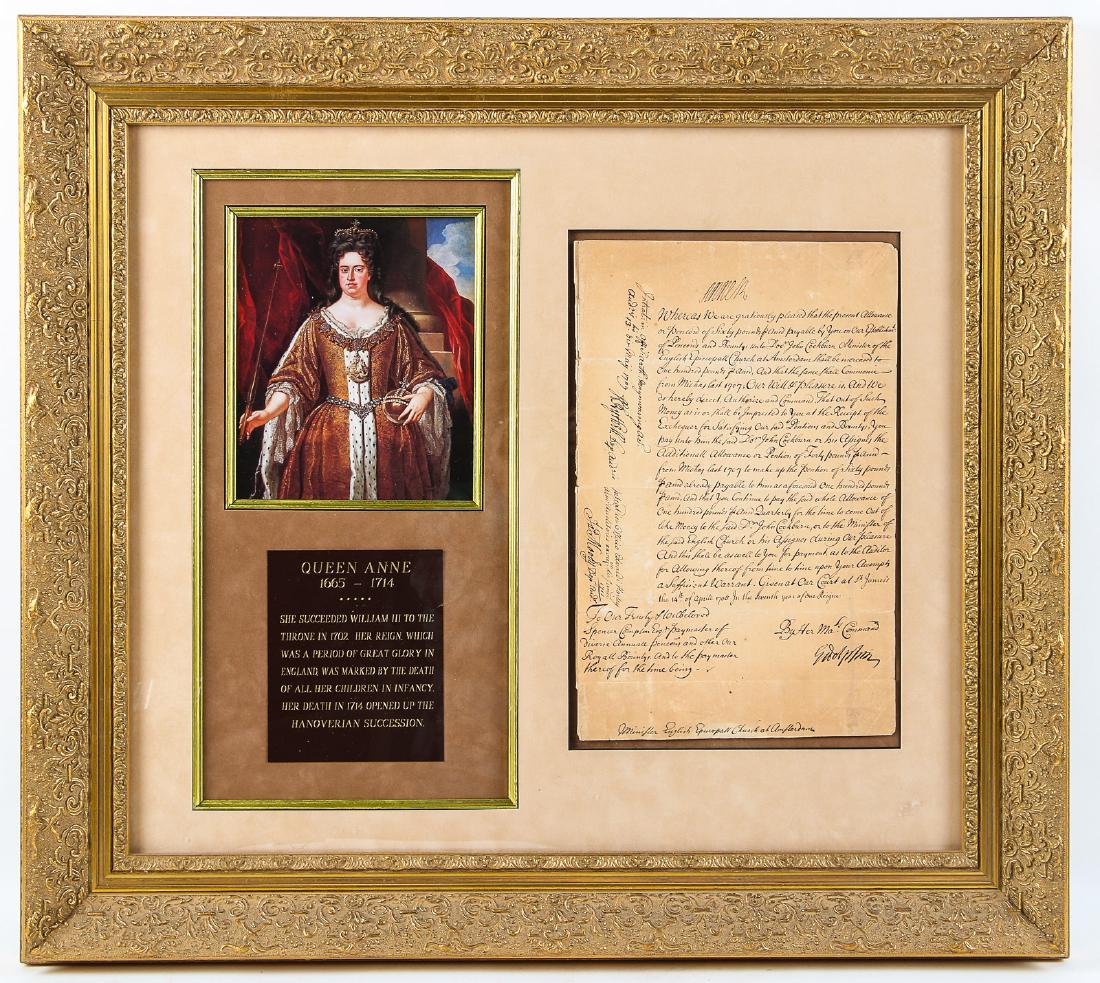 QUEEN ANNE
1665 – 1714
•••••
SHE SUCCEEDED WILLIAM III TO THE
THRONE IN 1702. HER REIGN, WHICH
WAS A PERIOD OF GREAT GLORY IN
ENGLAND, WAS MARKED BY THE DEATH
OF ALL HER CHILDREN IN INFANCY.
HER DEATH IN 1714 OPENED UP THE
HANOVERIAN SUCCESSION.
Anne R
Whereas We are gratiously pleased that the present Allowance
or Pencon of Sixty pounds p Ann payable by You on Our Establishmt
of Pencons and Bounty unto Doct John Cockburn Minister of the
English Episcopall Church at Amsterdam shall be increased to
One hundred pounds p Ann. And that the same shall Commence
from Michas last 1707. Our Will & pleasure is, And We
do hereby direct Authorize and Command That out of Such
Money as is or shall be Imprested to You at the Receipt of the
Exchequer for Satisfying Our said Pentions and Bountys, You
pay unto him the said Dor John Cockburn or his Assignes the
Additionall Allowance or Pention of Forty pounds p Ann
from Michas last 1707 to make up the Pention of Sixty pounds
p Ann already payable to him as aforesaid One hundred pounds
p Ann. And that You Continue to pay the said whole Allowance of
One hundred pounds p Ann Quarterly for the time to come Out of
like Money to the said Dr John Cockburn, or to the Minister of
the said English Church or his Assignes during Our pleasure
And this shall be as well to You for payment, as to the Auditor
for Allowing thereof from time to time upon Your Accompts
a Sufficient Warrant. Given at Our Court at St James's
the 14th of Aprill 1708 In the Seventh year of Our Reigne
To Our Trusty & Welbeloved
Spencer Compton Esqr Paymaster of
divers Annuall pencons and other Our
Royall Bountys And to the paymaster
thereof for the time being
By Her Mats Command
Godolphin
Minister English Episcopall Church at Amsterdam